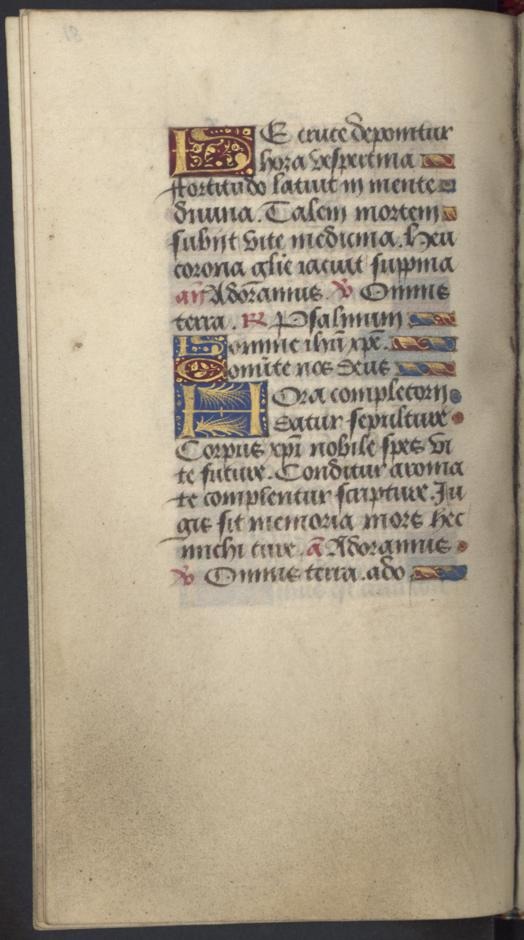 DE cruce deponitur
hora vespertina
ffortitudo latuit in mente
diuina. Talem mortem
subijt vite medicina. Heu
corona glie iacuit suppina
an Adoramus. V Omnis
terra. R Psalmum
Domine ihu xpe.
Conuerte nos deus
HOra completorij
datur sepulture
Corpus xpi nobile spes vi
te future. Conditur aroma
te complentur scripture. Iu
gis sit memoria mors hec
michi cure. a Adoramus
V Omnis terra. ado